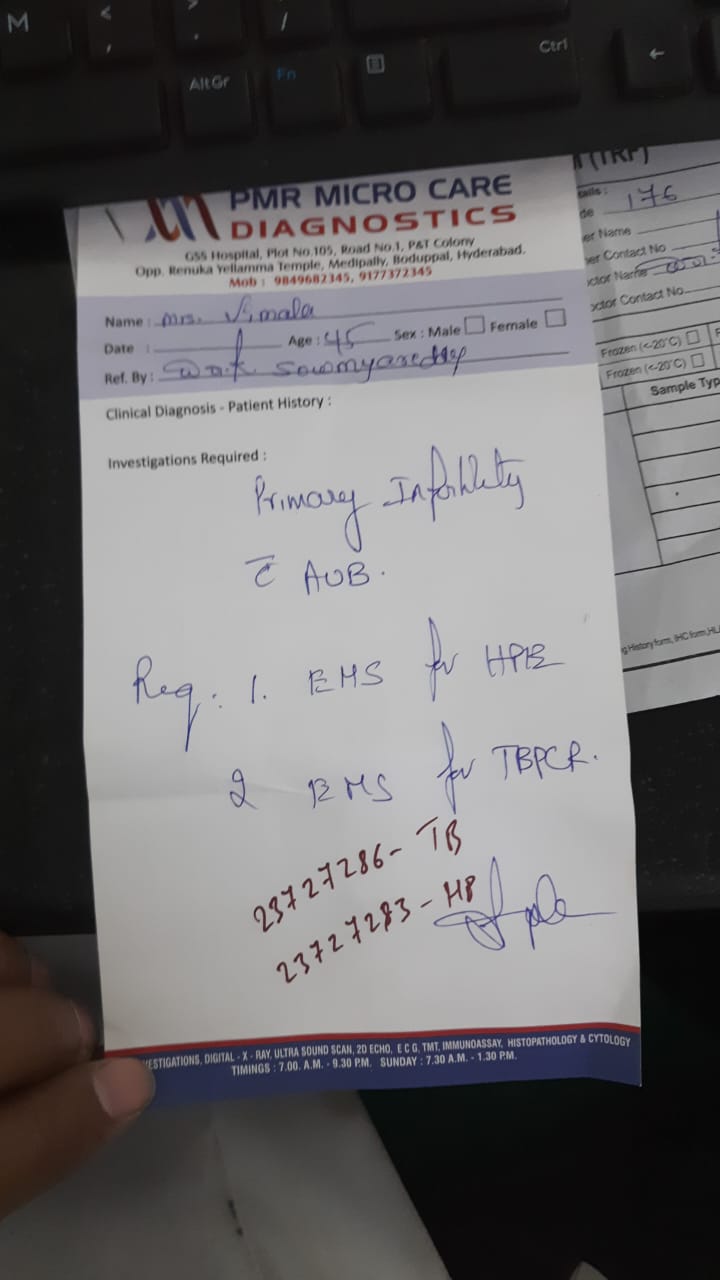 M
<
,
>
.
/
Alt Gr
Fn
Ctrl
←
PMR MICRO CARE
DIAGNOSTICS
GSS Hospital, Plot No.105, Road No.1, P&T Colony
Opp. Renuka Yellamma Temple, Medipally, Boduppal, Hyderabad.
Mob : 9849682345, 9177372345
Name : Mrs. Vimala
Date : Age : 45 Sex : Male Female
Ref. By :
Clinical Diagnosis - Patient History :
Investigations Required :
Primary Infertility
c̄ AUB.
Req : 1. EMS for HPE
2 EMS for TBPCR.
23727286 - TB
23727283 - HP
ESTIGATIONS, DIGITAL - X - RAY, ULTRA SOUND SCAN, 2D ECHO, E C G, TMT, IMMUNOASSAY, HISTOPATHOLOGY & CYTOLOGY
TIMINGS : 7.00. A.M. - 9.30 P.M. SUNDAY : 7.30 A.M. - 1.30 P.M.
(TRF)
ails :
de 176
er Name
er Contact No
ctor Name
octor Contact No.
Frozen (<-20°C)
Frozen (<-20°C)
Sample Typ
g History form, IHC form, HL